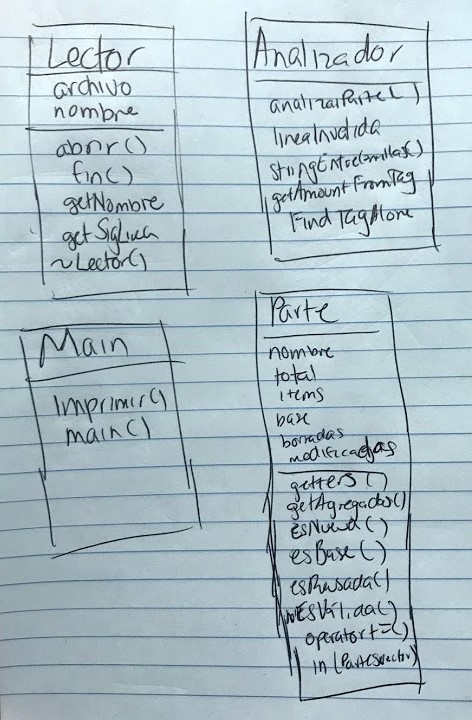 Lector
archivo
nombre
abrir()
fin()
getNombre
getSigLinea
~Lector()
Analizador
analizarParte()
lineaInvalida
stringEntreComillas()
getAmountFromTag
FindTagMore
Main
Imprimir()
main()
Parte
nombre
total
items
base
borradas
modificadas
getters()
getAgregadas()
esNueva()
esBase()
esReusada()
esValida()
operator+=()
in(PartesVector)